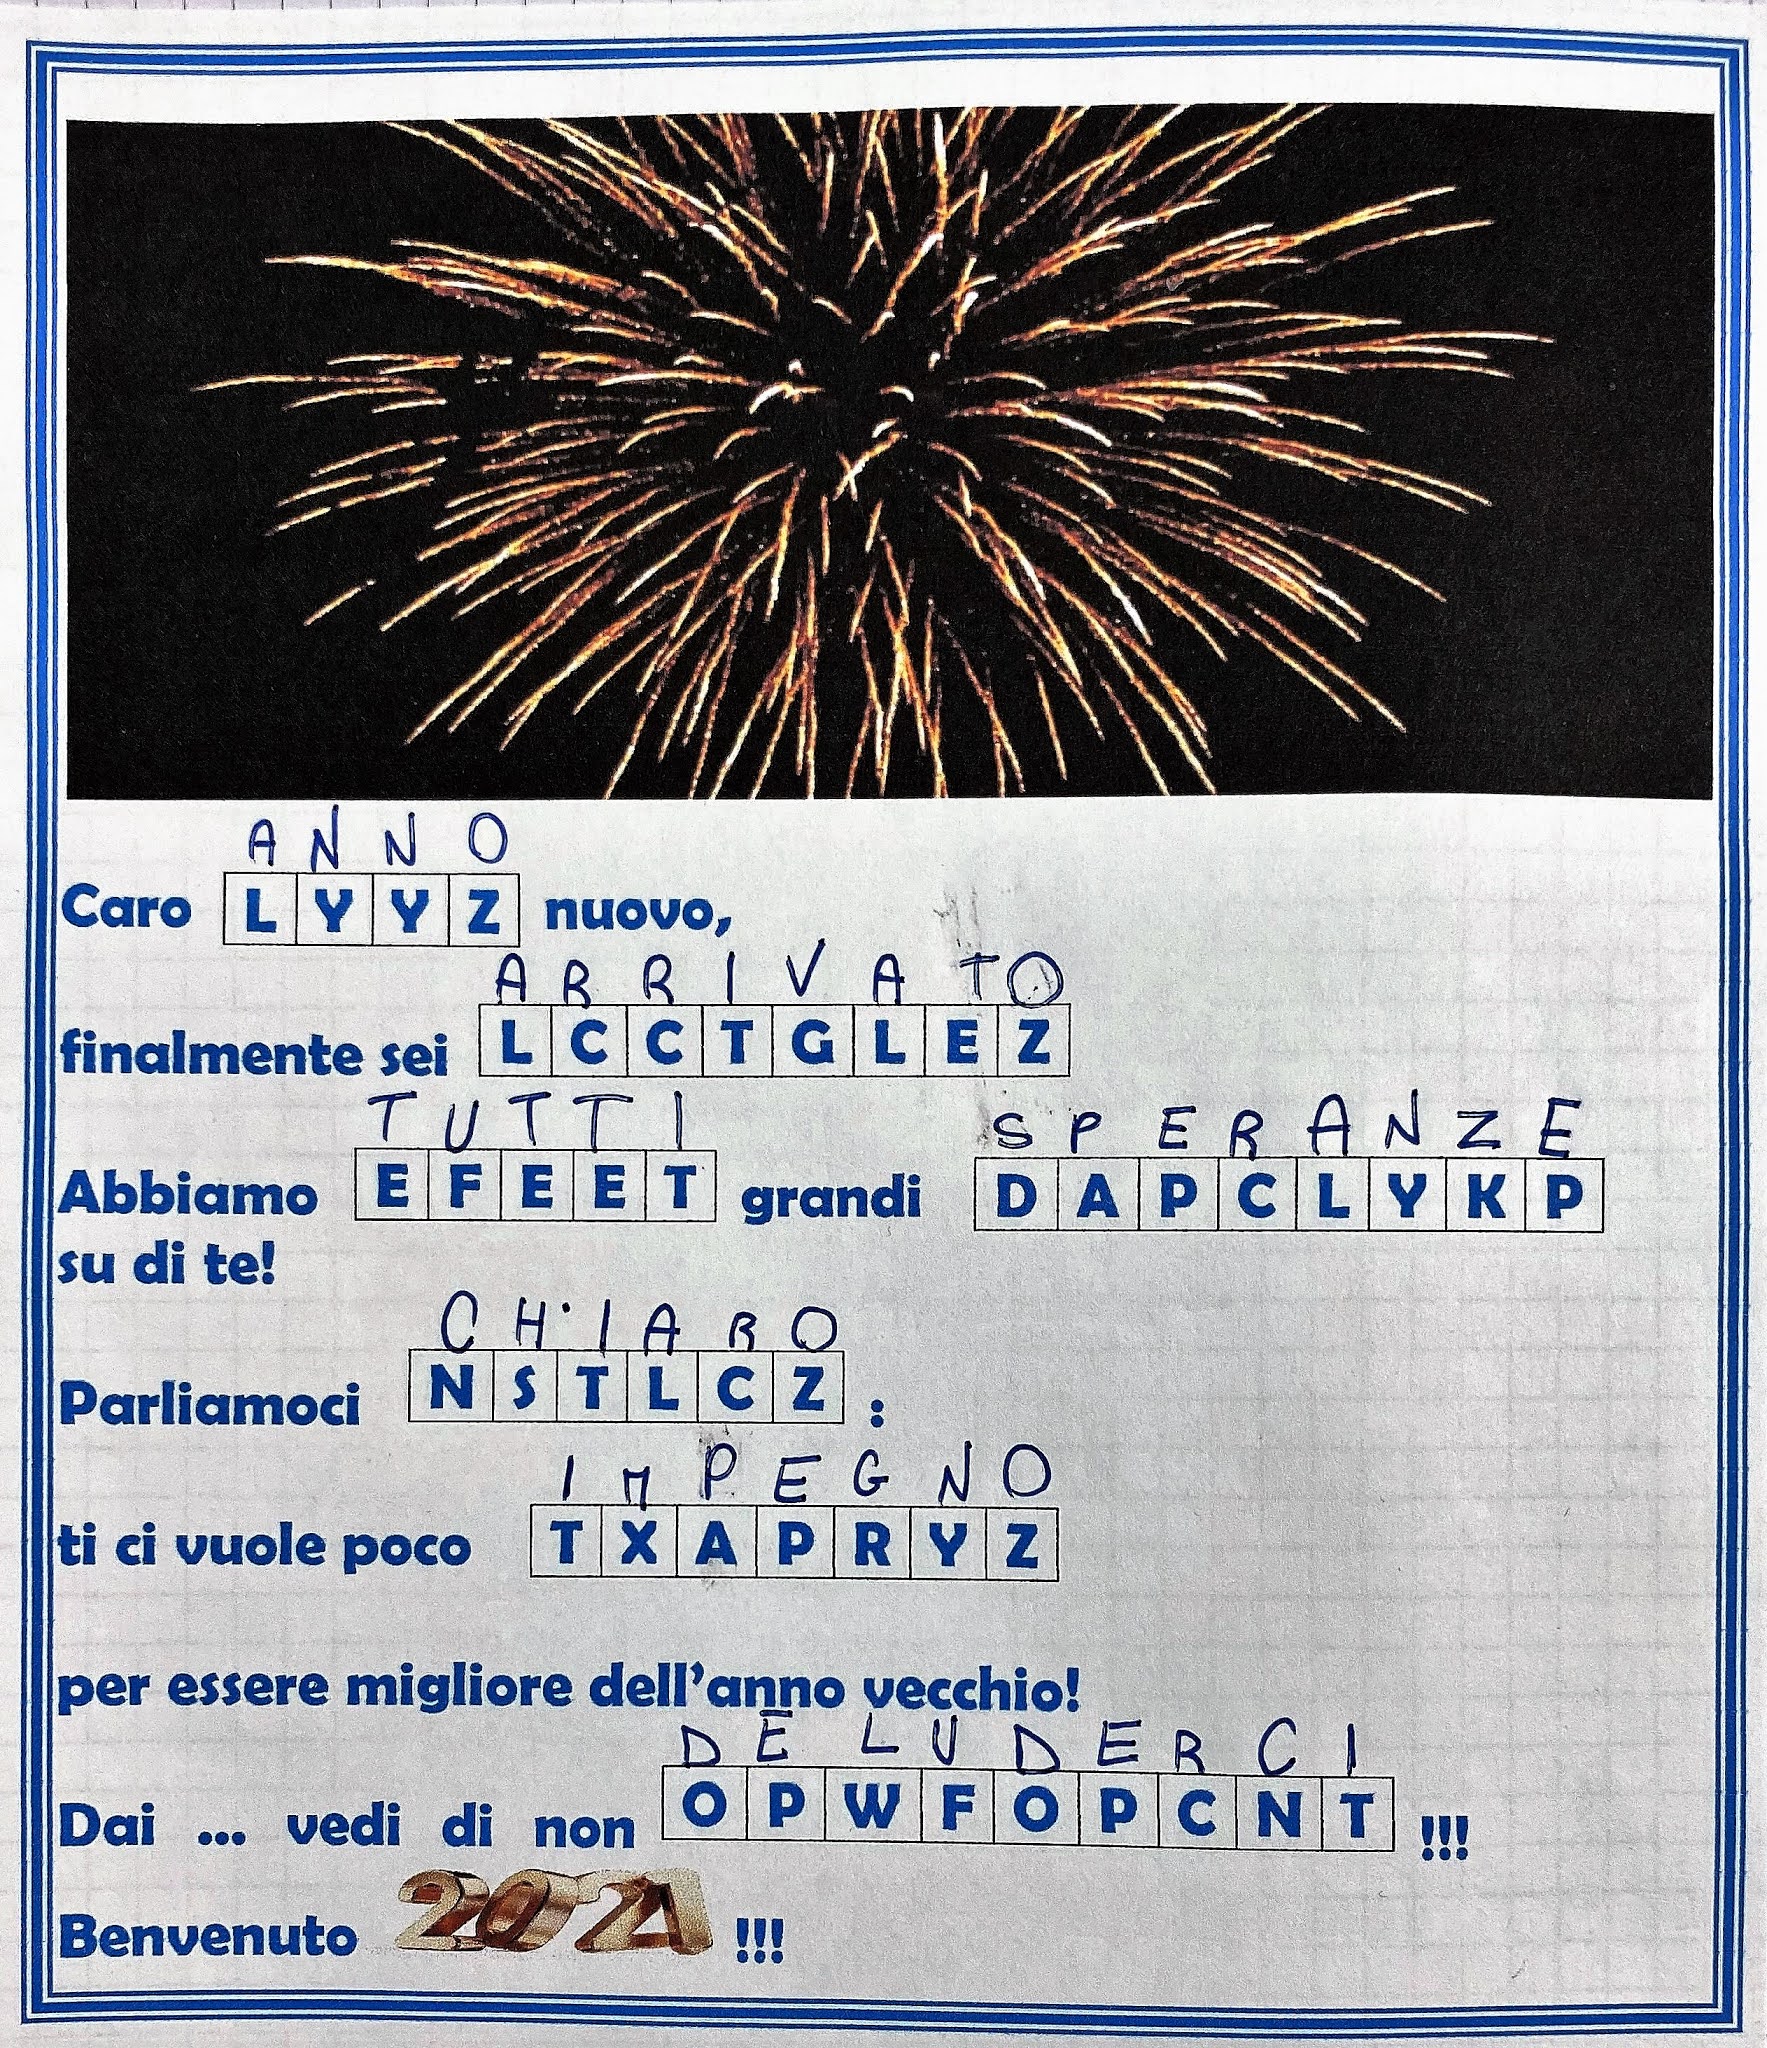 A N N O
Caro L Y Y Z nuovo,
A R R I V A T O
finalmente sei L C C T G L E Z
T U T T I S P E R A N Z E
Abbiamo E F E E T grandi D A P C L Y K P
su di te!
C H I A R O
Parliamoci N S T L C Z :
I M P E G N O
ti ci vuole poco T X A P R Y Z
per essere migliore dell'anno vecchio!
D E L U D E R C I
Dai ... vedi di non O P W F O P C N T !!!
Benvenuto 2021 !!!